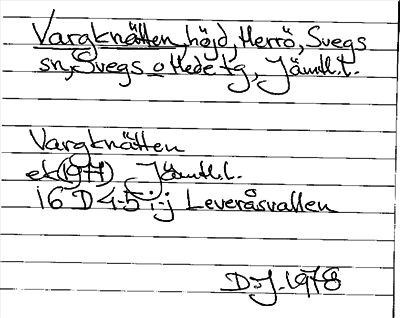 Vargknätten, höjd, Herrö, Svegs
sn, Svegs o Hede tg, Jämtl.l.
Vargknätten
ek(1971) Jämtl.l.
16 D 4-5 i-j Leveråsvallen
D-J. 1978